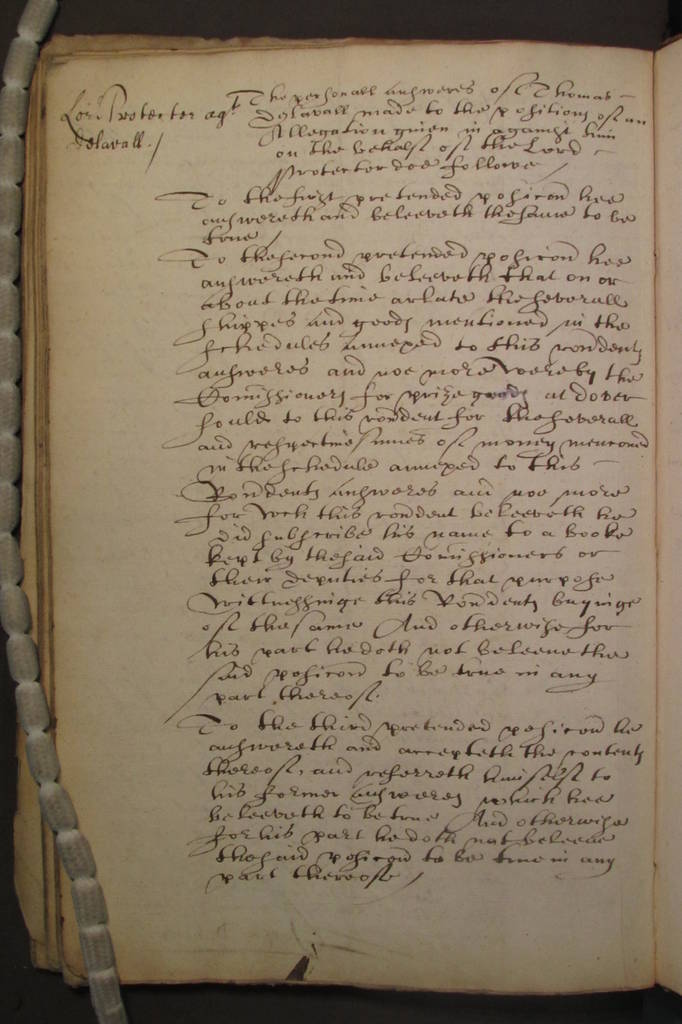 Lord Protector agt
Delavall./
The personall answeres of Thomas
Delavall made to the positions of an
Allegation given in against him
on the behalf of the Lord
Protector doe followe /
To the first pretended posicon hee
answereth and beleeveth the same to be
true /
To the second pretended posicon hee
answereth and beleeveth that on or
about the time arlate the severall
shippes and goods mentioned in the
schedules annexed to this rondents
answeres and noe more were by the
Comissioners for prize goods at dover
sould to this rondent for the severall
and respective summes of money mencioned
in the schedule annexed to this
Rondents answeres and noe more
for wch this rondent beleeveth he
did subscribe his name to a booke
kept by the said Comissioners or
their deputies for that purpose
Wittnessinge this Rondents buyinge
of the same And otherwise for
his part he doth not beleeve the
said posicon to be true in any
part thereof.
To the third pretended posicon he
answereth and accepteth the contents
thereof, and referreth himself to
his former answeres which hee
beleeveth to be true And otherwise
for his part he doth not beleeve
the said posicon to be true in any
part thereofe /